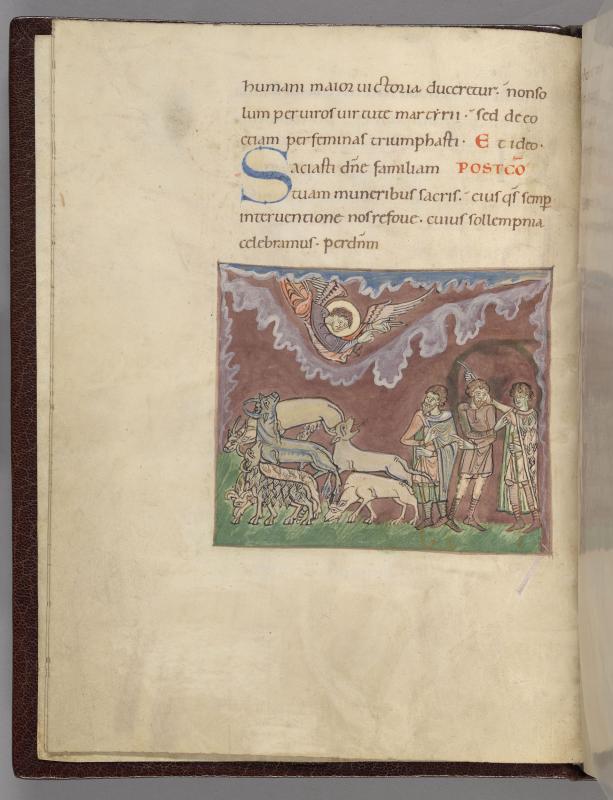 humani maior uictoria duceretur. nonso
lum per uiros uirtute martyrii. sed de eo
etiam per feminas triumphasti. Et ideo.
Saciasti dñe familiam POSTCŌ
tuam muneribus sacris. eius q̄s semp
interuentione nos refoue. cuius sollempnia
celebramus. per dñm